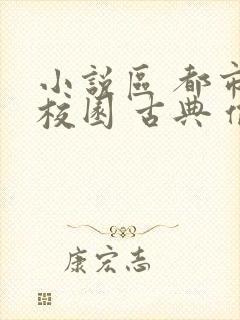 小說區 都市
校園 古典
康宏志